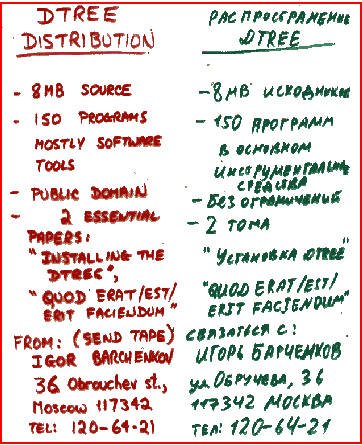 DTREE
DISTRIBUTION
- 8MB SOURCE
- 150 PROGRAMS
MOSTLY SOFTWARE
TOOLS
- PUBLIC DOMAIN
- 2 ESSENTIAL
PAPERS:
"INSTALLING THE
DTREE",
"QUOD ERAT/EST/
ERIT FACIENDUM"
FROM: (SEND TAPE)
IGOR BARCHENKOV
36 Obrouchev st.,
Moscow 117342
TEL: 120-64-21
РАСПРОСТРАНЕНИЕ
DTREE
- 8MB ИСХОДНИКОВ
- 150 ПРОГРАММ
В ОСНОВНОМ
ИНСТРУМЕНТАЛЬНЫЕ
СРЕДСТВА
- БЕЗ ОГРАНИЧЕНИЙ
- 2 ТОМА
"УСТАНОВКА DTREE"
"QUOD ERAT/EST/
ERIT FACIENDUM"
СВЯЗАТЬСЯ С:
ИГОРЬ БАРЧЕНКОВ
ул. ОБРУЧЕВА, 36
117342 МОСКВА
ТЕЛ: 120-64-21